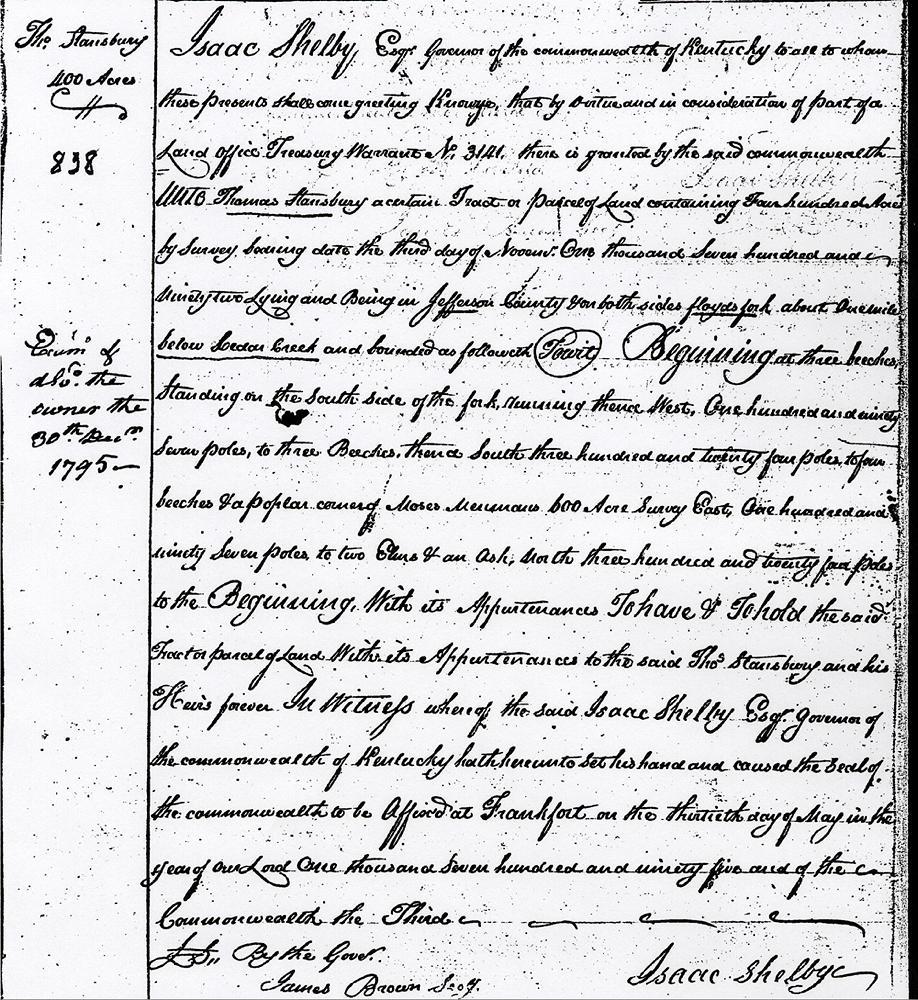 Thoˢ Stansbury
400 Acres
838
Exam.ᵈ &
dLv.ᵈ the
owner the
30th Decm.r
1795
Isaac Shelby, Esqr. Governor of the commonwealth of Kentucky to all to whom
these presents shall come greeting Know ye, that by virtue and in consideration of part of a
Land office Treasury Warrant No. 3141, there is granted by the said commonwealth
Unto Thomas Stansbury a certain Tract or parcel of Land containing Four hundred Acres
by Survey bearing date the third day of Novemr. One thousand Seven hundred and
ninety two Lying and Being in Jefferson County & on both sides floyds fork about One mile
below Cedar Creek and bounded as followeth Towit Beginning at three beeches,
Standing on the South side of the fork, running thence West, One hundred and ninety
Seven poles, to three Beeches, thence South three hundred and twenty four poles, to four
beeches & a poplar corner of Moses 600 Acre Survey East, One hundred and
ninety Seven poles to two Elms & an Ash, North three hundred and twenty four poles
to the Beginning, With its Appurtenances To have & To hold the said
Tract or parcel of Land With its Appurtenances to the said Thoˢ Stansbury and his
Heirs forever In Witness whereof the said Isaac Shelby Esqr. Governor of
the commonwealth of Kentucky hath hereunto Set his hand and caused the Seal of
the commonwealth to be Affixed at Frankfort on the thirtieth day of May in the
year of our Lord One thousand Seven hundred and ninety five and of the
Commonwealth the Third
L.S. By the Gover.
James Brown Secy.
Isaac Shelby